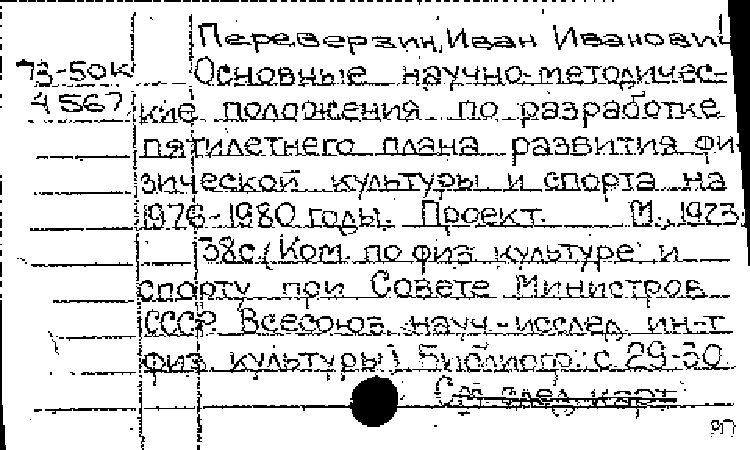 Переверзин, Иван Иванович
73-50к Основные научно-методичес-
4567 кие положения по разработке
пятилетнего плана развития фи-
зической культуры и спорта на
1976-1980 годы. Проект. М., 1973.
38с. (Ком. по физ. культуре и
спорту при Совете Министров
СССР. Всесоюз. науч.-исслед. ин-т
физ. культуры). Библиогр.: с. 29-30
См. след. карт.